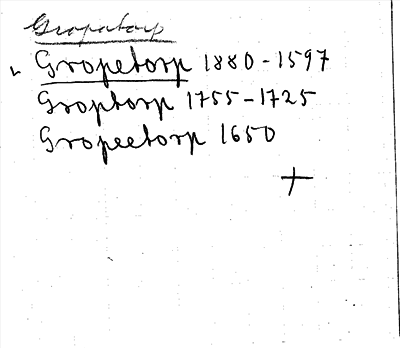 Gropatorp
Gropetorp 1880-1597
Groptorp 1755-1725
Gropeetorp 1650